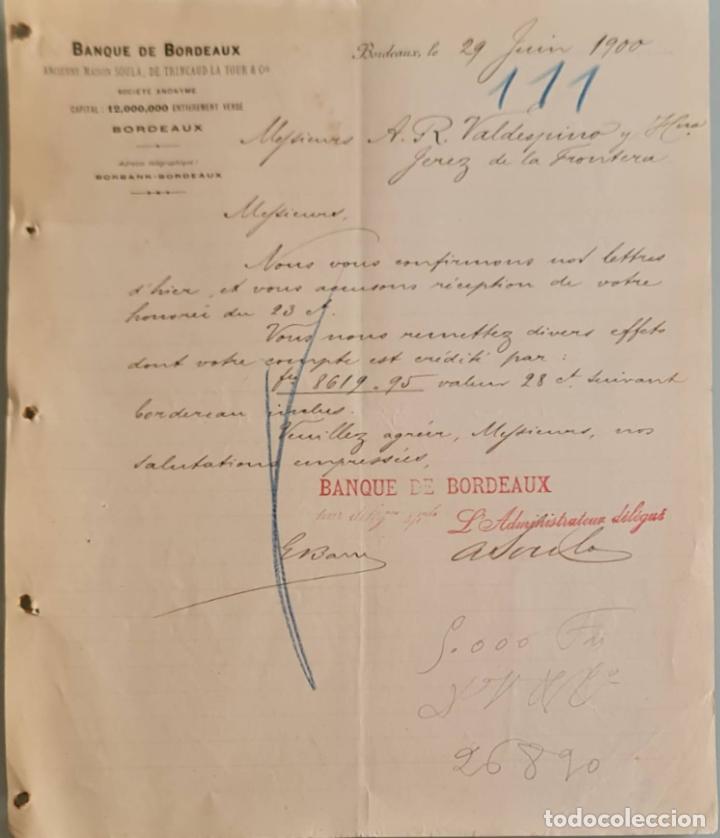 BANQUE DE BORDEAUX
ANCIENNE MAISON SOULA, DE TRINCAUD LA TOUR & Cie
SOCIÉTÉ ANONYME
CAPITAL : 12,000,000 ENTIÈREMENT VERSÉ
BORDEAUX
Adresse télégraphique :
BORBANK-BORDEAUX
Bordeaux, le 29 Juin 1900
111
Messieurs A. R. Valdespino y Hno
Jerez de la Frontera
Messieurs,
Nous vous confirmons nos lettres
d'hier, et vous accusons réception de votre
honorée du 23 ct.
Vous nous remettez divers effets
dont votre compte est crédité par :
fcs 8619.95 valeur 28 ct. suivant
bordereau inclus.
Veuillez agréer, Messieurs, nos
salutations empressées,
BANQUE DE BORDEAUX
L'Administrateur délégué
ASoula
5.000
26890
todocoleccion.net